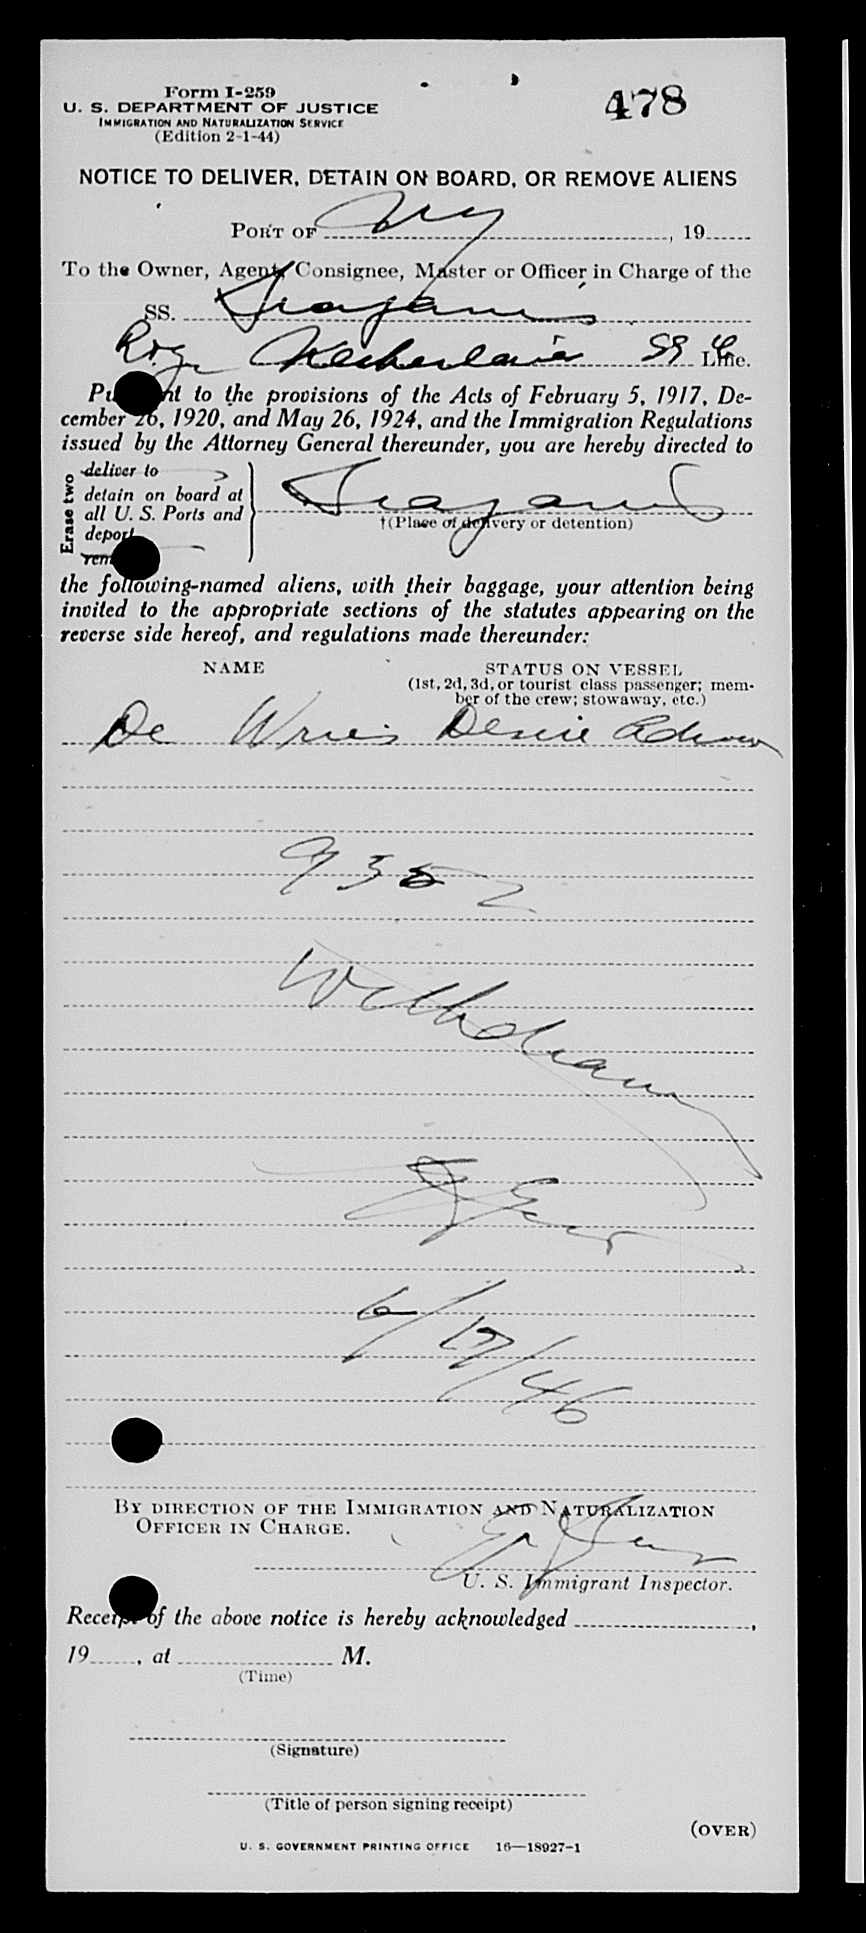 Form I-259
U. S. DEPARTMENT OF JUSTICE
IMMIGRATION AND NATURALIZATION SERVICE
(Edition 2-1-44)
478
NOTICE TO DELIVER, DETAIN ON BOARD, OR REMOVE ALIENS
PORT OF NY, 19
To the Owner, Agent, Consignee, Master or Officer in Charge of the
SS. Trajanus
Royal SS Line.
to the provisions of the Acts of February 5, 1917, De-
cember 26, 1920, and May 26, 1924, and the Immigration Regulations
issued by the Attorney General thereunder, you are hereby directed to
Erase two
deliver to
detain on board at
all U. S. Ports and
deport
Trajanus
†(Place of delivery or detention)
the following-named aliens, with their baggage, your attention being
invited to the appropriate sections of the statutes appearing on the
reverse side hereof, and regulations made thereunder:
NAME
STATUS ON VESSEL
(1st, 2d, 3d, or tourist class passenger; mem-
ber of the crew; stowaway, etc.)
De
9352
Withdrawn
6/17/46
BY DIRECTION OF THE IMMIGRATION AND NATURALIZATION
OFFICER IN CHARGE.
U. S. Immigrant Inspector.
Receipt of the above notice is hereby acknowledged ,
19 , at M.
(Time)
(Signature)
(Title of person signing receipt)
(OVER)
U. S. GOVERNMENT PRINTING OFFICE 16—18927-1